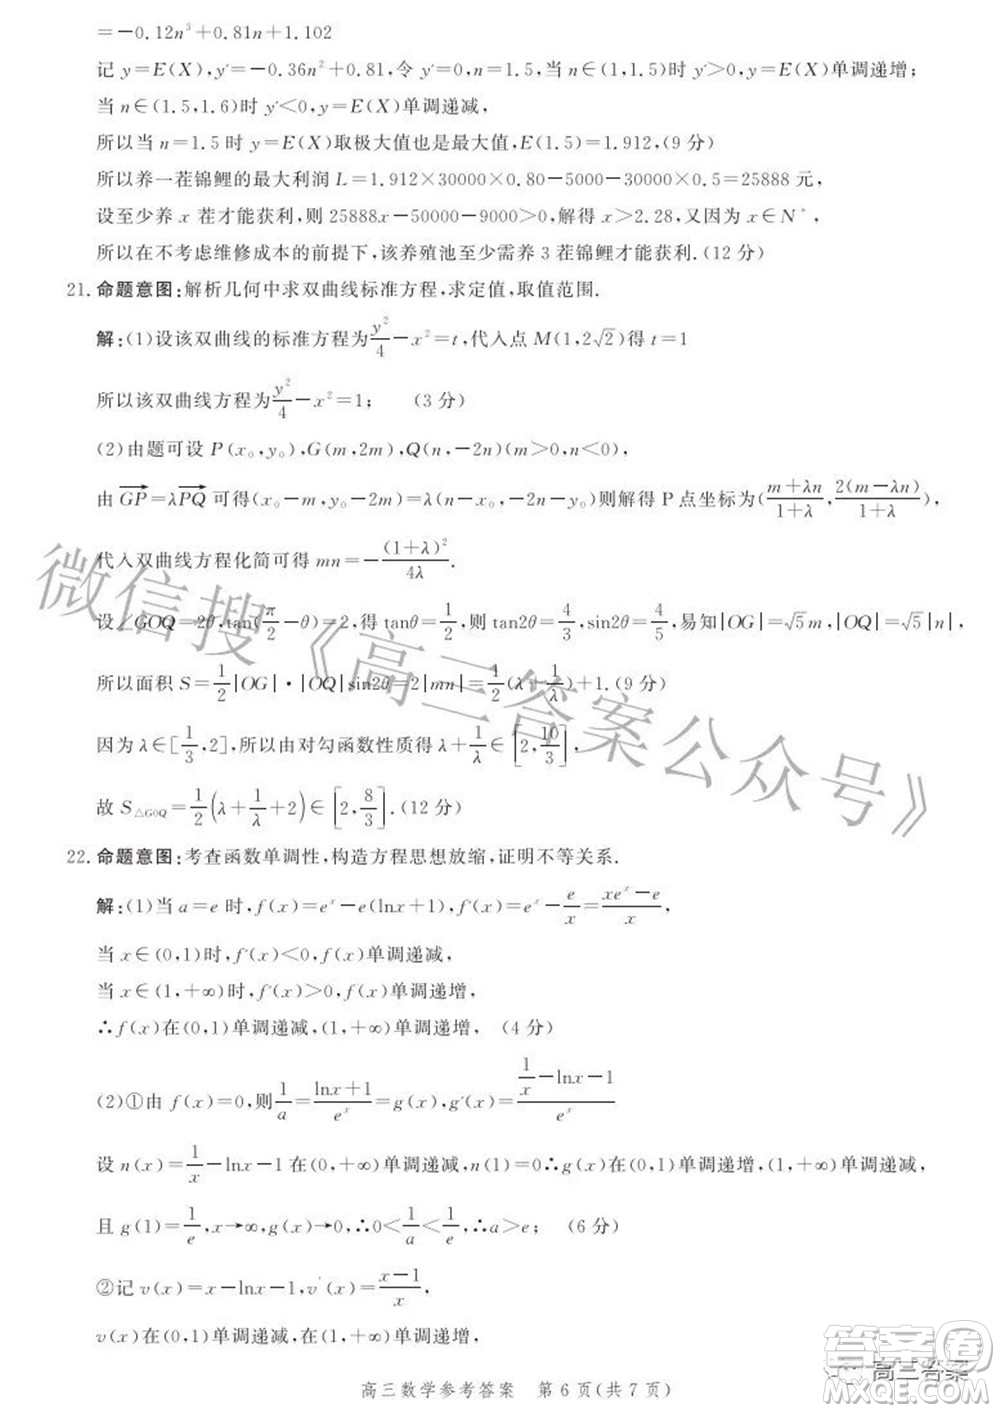 =-0.12n³+0.81n+1.102
记 y=E(X),y′=-0.36n²+0.81,令 y′=0,n=1.5,当 n∈(1,1.5)时 y′>0,y=E(X)单调递增;
当 n∈(1.5,1.6)时 y′<0,y=E(X)单调递减,
所以当 n=1.5 时 y=E(X)取极大值也是最大值,E(1.5)=1.912,(9 分)
所以养一茬锦鲤的最大利润 L=1.912×30000×0.80-5000-30000×0.5=25888 元,
设至少养 x 茬才能获利,则 25888x-50000-9000>0,解得 x>2.28,又因为 x∈N*,
所以在不考虑维修成本的前提下,该养殖池至少需养 3 茬锦鲤才能获利.(12 分)
21. 命题意图:解析几何中求双曲线标准方程,求定值,取值范围.
解:(1)设该双曲线的标准方程为y²/4-x²=t,代入点 M(1,2√2)得 t=1
所以该双曲线方程为y²/4-x²=1; (3 分)
(2)由题可设 P(x₀,y₀),G(m,2m),Q(n,-2n)(m>0,n<0),
由 GP=λPQ 可得(x₀-m,y₀-2m)=λ(n-x₀,-2n-y₀)则解得 P 点坐标为((m+λn)/(1+λ),2(m-λn)/(1+λ)),
代入双曲线方程化简可得 mn=-(1+λ)²/4λ.
设∠GOQ=2θ,tan(π/2-θ)=2,得 tanθ=1/2,则 tan2θ=4/3,sin2θ=4/5,易知|OG|=√5m,|OQ|=√5|n|,
所以面积 S=1/2|OG|·|OQ|sin2θ=2|mn|=1/2(λ+1/λ)+1.(9 分)
因为 λ∈[1/3,2],所以由对勾函数性质得 λ+1/λ∈[2,10/3],
故 S△GOQ=1/2(λ+1/λ+2)∈[2,8/3].(12 分)
22. 命题意图:考查函数单调性,构造方程思想放缩,证明不等关系.
解:(1)当 a=e 时,f(x)=eˣ-e(lnx+1),f′(x)=eˣ-e/x=(xeˣ-e)/x,
当 x∈(0,1)时,f′(x)<0,f(x)单调递减,
当 x∈(1,+∞)时,f′(x)>0,f(x)单调递增,
∴f(x)在(0,1)单调递减,(1,+∞)单调递增, (4 分)
(2)①由 f(x)=0,则1/a=(lnx+1)/eˣ=g(x),g′(x)=(1/x-lnx-1)/eˣ
设 n(x)=1/x-lnx-1在(0,+∞)单调递减,n(1)=0∴g(x)在(0,1)单调递增,(1,+∞)单调递减,
且 g(1)=1/e,x→∞,g(x)→0,∴0<1/a<1/e,∴a>e; (6 分)
②记 v(x)=x-lnx-1,v′(x)=(x-1)/x,
v(x)在(0,1)单调递减,在(1,+∞)单调递增,
高三数学参考答案 第 6 页(共 7 页)
微信搜《高三答案公众号》
答案圈
高三答案